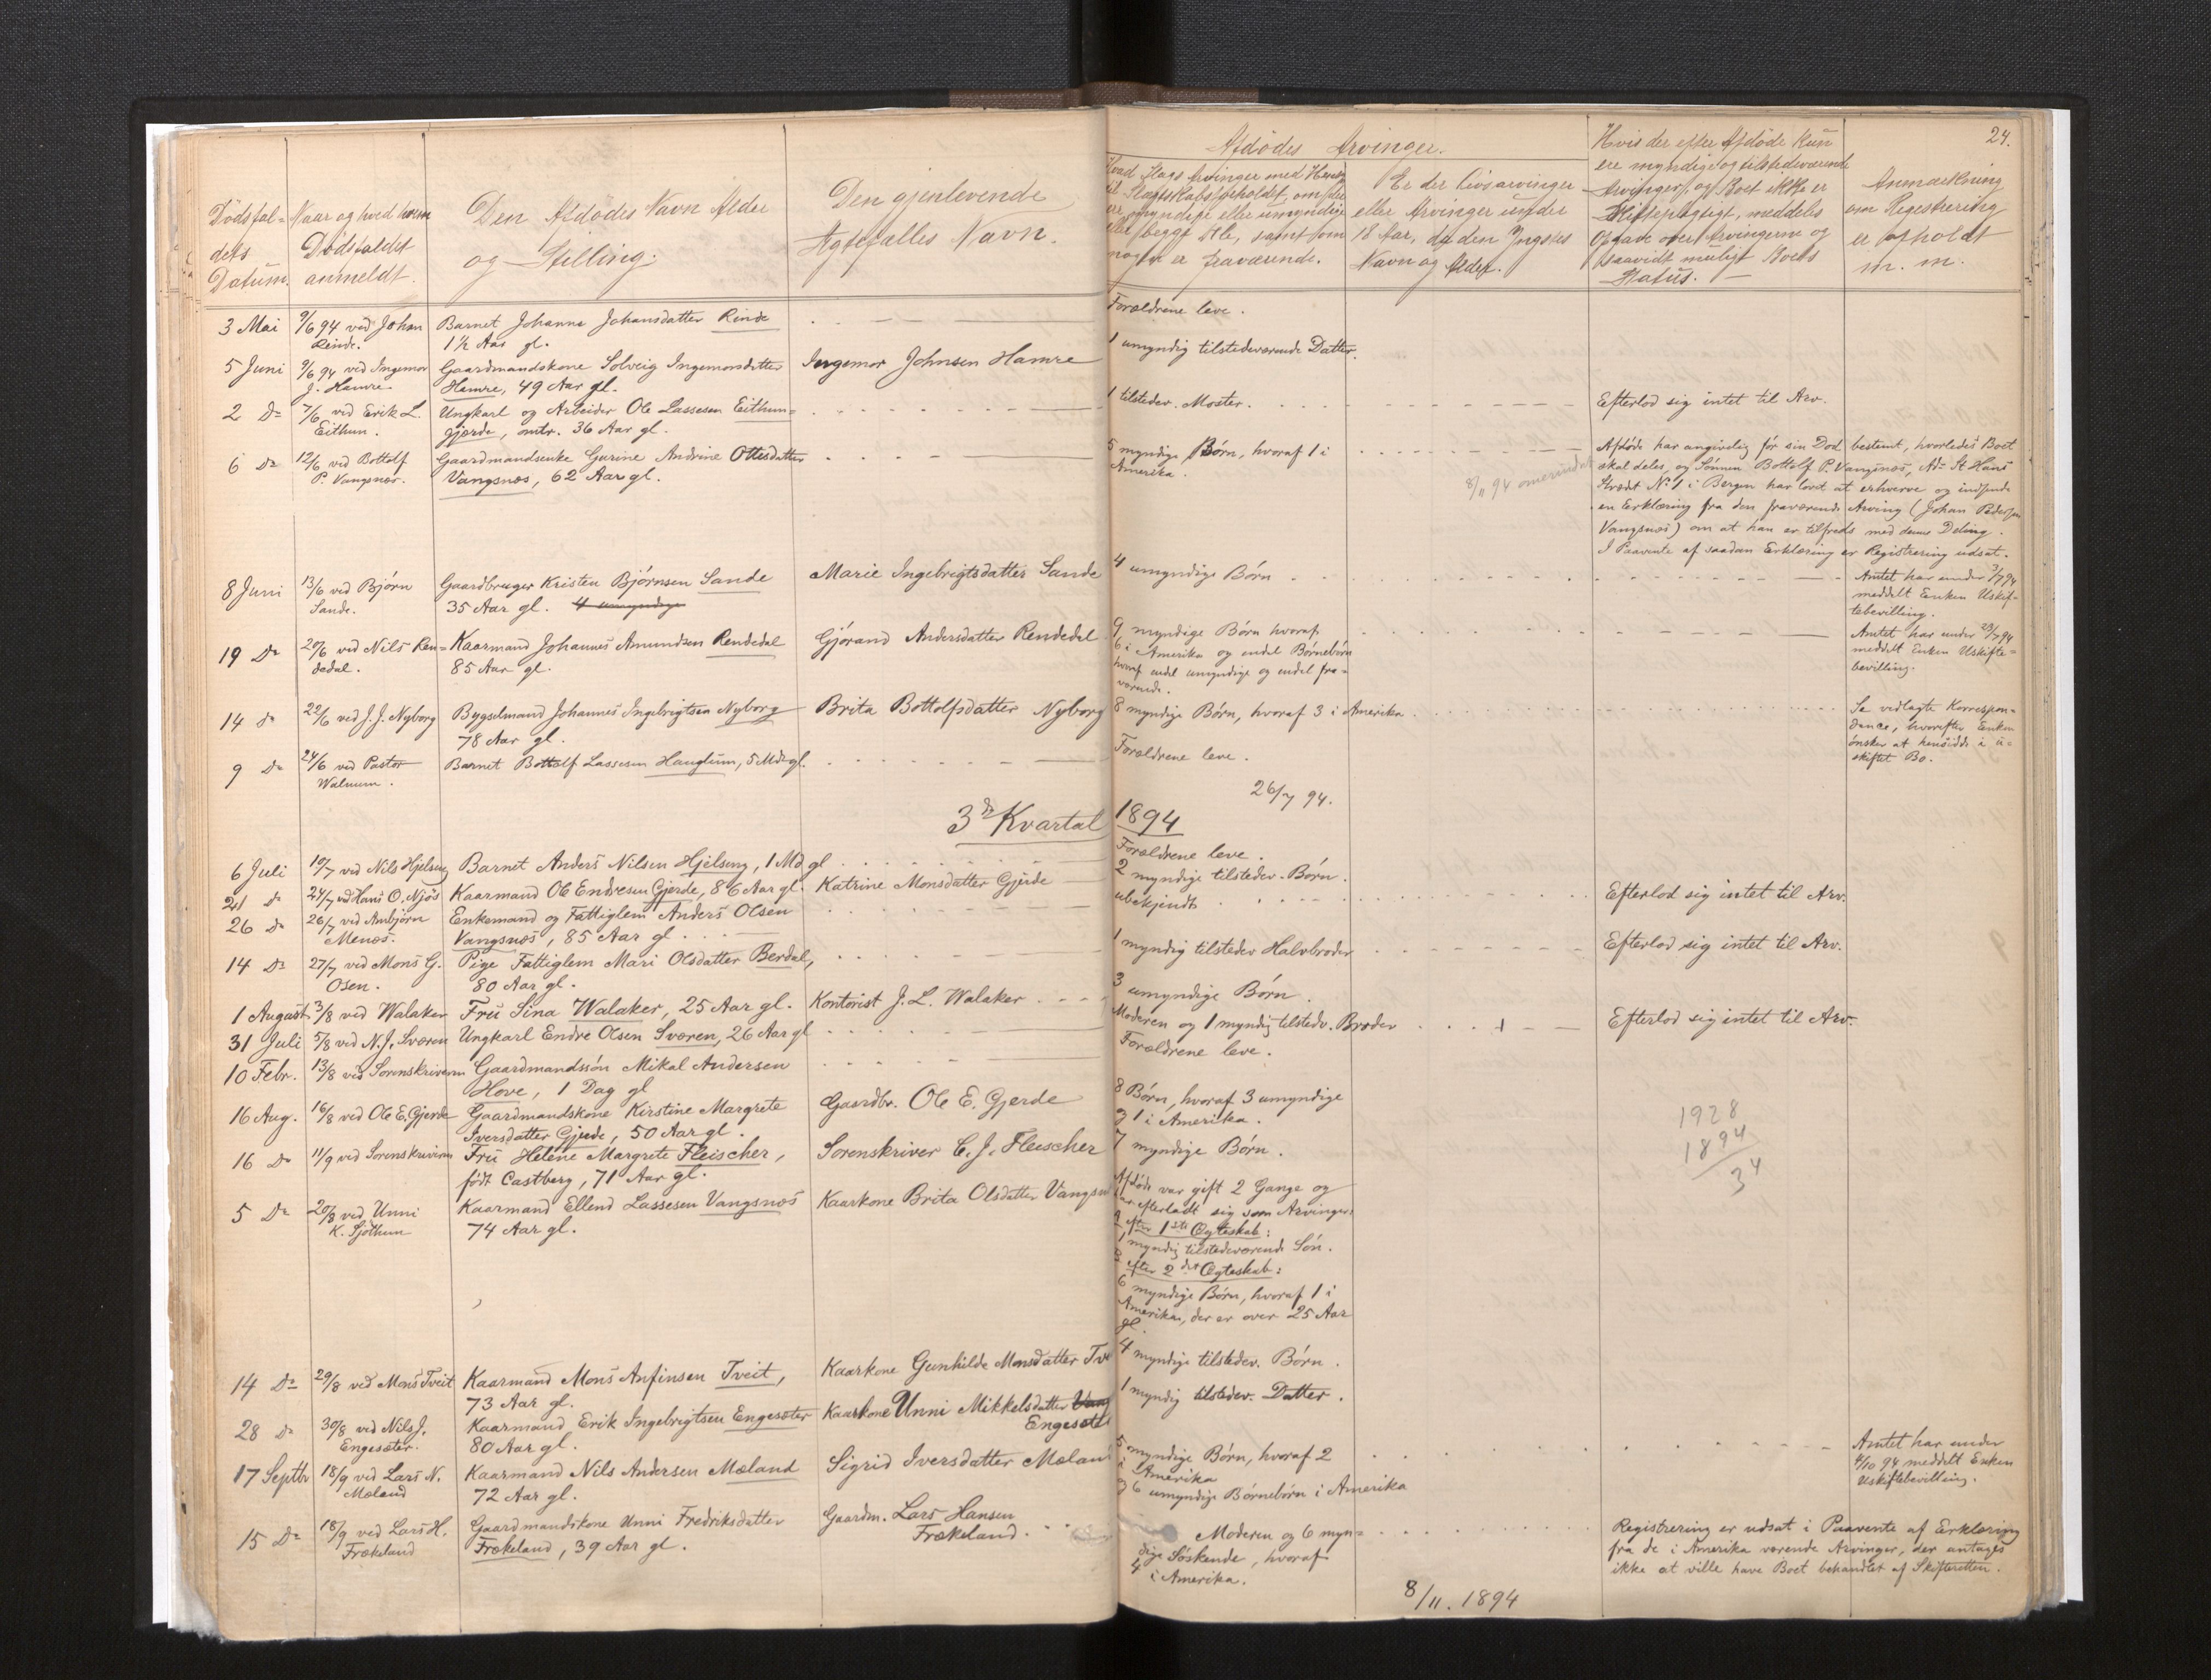 24.
Dødsfal-
dets
Datum.
Naar og hved hvem
Dødsfaldet
anmeldt.
Den Afdødes Navn Alder
og Stilling.
Den gjenlevende
Ægtefælles Navn.
Afdødes Arvinger.
Hvad Slags Arvinger med Hensyn
til Slægtskabsforholdet, om de
er myndige eller umyndige
eller begge Dele, samt om
nogen er fraværende.
Er der Livsarvinger
eller Arvinger under
18 Aar, da den Yngstes
Navn og Alder.
Hvis der efter Afdøde kun
ere myndige og tilstedeværende
Arvinger, og Boet ikke er
Skiftepligtigt, meddels
Opgave over Arvingerne og
saavidt muligt Boets
Status.
Anmærkning
om Registrering
er afholdt
m. m.
3 Mai
9/6 94 ved Johan
Rinde.
Barnet Johanne Johansdatter Rinde
1½ Aar gl.
Forældrene leve.
5 Juni
9/6 94 ved Ingemor
J. Hamre.
Gaardmandskone Solveig Ingemorsdatter
Hamre, 49 Aar gl.
Ingemor Johnsen Hamre
1 umyndig tilstedeværende Datter.
2 Do
7/6 ved Erik L.
Eithun.
Ungkarl og Arbeider Ole Lassesen Eithun-
gjerde, omtr. 36 Aar gl.
1 tilstedev. Moster.
Efterlod sig intet til Arv.
6 Do
12/6 ved Bottolf
P. Vangsnæs.
Gaardmandsenke Gurine Andrine Ottesdatter
Vangsnæs, 62 Aar gl.
5 myndige Børn, hvoraf 1 i
Amerika.
8/11 94
Afdøde har angivelig før sin Død bestemt, hvorledes Boet
skal deles, og Sønnen Bottolf P. Vangsnæs, Ad. St. Hans
Strædet No 1 i Bergen har lovet at erhverve og indsende
en Erklæring fra den fraværende Arving (Johan Pedersen
Vangsnæs) om at han er tilfreds med denne Deling.
I Paavente af saadan Erklæring er Registrering udsat.
8 Juni
13/6 ved Bjørn
Sande.
Gaardbruger Kristen Bjørnsen Sande
35 Aar gl. 4 umyndige
Marie Ingebrigtsdatter Sande
4 umyndige Børn.
Amtet har under 3/7 94
meddelt Enken Uskif-
tebevilling.
19 Do
20/6 ved Nils Ren-
dedal.
Kaarmand Johannes Amundsen Rendedal
85 Aar gl.
Gjørand Andersdatter Rendedal
9 myndige Børn hvoraf
6 i Amerika og endel Børnebørn
hvoraf endel umyndige og endel fra-
værende.
Amtet har under 23/7 94
meddelt Enken Uskifte-
bevilling.
14 do
22/6 ved J. J. Nyborg
Bygselmand Johannes Ingebrigtsen Nyborg
78 Aar gl.
Brita Bottolfsdatter Nyborg
8 myndige Børn, hvoraf 3 i Amerika
Se vedlagte Korrespon-
dance, hvorefter Enken
ønsker at hensidde i u-
skiftet Bo.
9 Do
24/6 ved Pastor
Walnum.
Barnet Bottolf Lassesen Hauglum, 5 Mdr gl.
Forældrene leve.
26/7 94.
3die Kvartal 1894
6 Juli
10/7 ved Nils Hjelseng
Barnet Anders Nilsen Hjelseng, 1 Md gl
Forældrene leve.
21 Do
24/7 ved Hans O. Njøs
Kaarmand Ole Endresen Gjerde, 86 Aar gl.
Katrine Monsdatter Gjerde
2 myndige tilstedev. Børn.
26 Do
26/7 ved Anbjørn
Menæs.
Enkemand og Fattiglem Anders Olsen
Vangsnæs, 85 Aar gl.
ubekjendt
Efterlod sig intet til Arv.
14 Do
27/7 ved Mons G.
Osen.
Pige Fattiglem Mari Olsdatter Berdal,
80 Aar gl.
1 myndig tilstedev Halvbroder
Efterlod sig intet til Arv.
1 August
3/8 ved Walaker
Fru Sina Walaker, 25 Aar gl.
Kontorist J. L. Walaker
3 umyndige Børn.
31 Juli
5/8 ved N. J. Sværen
Ungkarl Endre Olsen Sværen, 26 Aar gl
Moderen og 1 myndig tilstedv. Broder
Efterlod sig intet til Arv.
10 Febr.
13/8 ved Sorenskriveren
Gaardmandssøn Mikal Andersen
Hove, 1 Dag gl
Forældrene leve.
16 Aug.
16/8 ved Ole E. Gjerde
Gaardmandskone Kirstine Margrete
Iversdatter Gjerde, 50 Aar gl.
Gaardbr. Ole E. Gjerde
8 Børn, hvoraf 3 umyndige
og 1 i Amerika.
1928
1894
34
16 Do
11/9 ved Sorenskriveren
Fru Helene Margrete Fleischer,
født Castberg, 71 Aar gl.
Sorenskriver C. J. Fleischer
7 myndige Børn.
5 Do
20/8 ved Unni
K. Sjøthun
Kaarmand Ellend Lassesen Vangsnæs
74 Aar gl.
Kaarkone Brita Olsdatter Vangsn
Afdøde var gift 2 Gange og
har efterladt sig som Arvinger:
efter 1ste Ægteskab:
1 myndig tilstedeværende Søn.
efter 2det Ægteskab:
6 myndige Børn, hvoraf 1 i
Amerika, der er over 25 Aar
gl.
14 Do
29/8 ved Mons Tveit
Kaarmand Mons Anfinsen Tveit,
73 Aar gl.
Kaarkone Gunhilde Monsdatter Tve
4 myndige tilstedev. Børn.
28 Do
30/8 ved Nils J.
Engesæter.
Kaarmand Erik Ingebrigtsen Engesæter
80 Aar gl.
Kaarkone Unni Mikkelsdatter Vang
Engesæte
1 myndig tilstedev. Datter.
17 Septbr
18/9 ved Lars N.
Mæland
Kaarmand Nils Andersen Mæland
72 Aar gl.
Sigrid Iversdatter Mælan
5 myndige Børn, hvoraf 2
i Amerika
og 6 umyndige Børnebørn i Amerika
Amtet har under
4/10 94 meddelt Enken
Uskiftebevilling.
15 Do
18/9 ved Lars H.
Frækeland
Gaardmandskone Unni Fredriksdatter
Frækeland, 39 Aar gl.
Gaardm. Lars Hansen
Frækeland.
Moderen og 6 myn-
dige Søskende, hvoraf
4 i Amerika.
Registrering er udsat i Paavente af Erklæring
fra de i Amerika værende Arvinger, der antages
ikke at ville have Boet behandlet af Skifteretten.
8/11. 1894